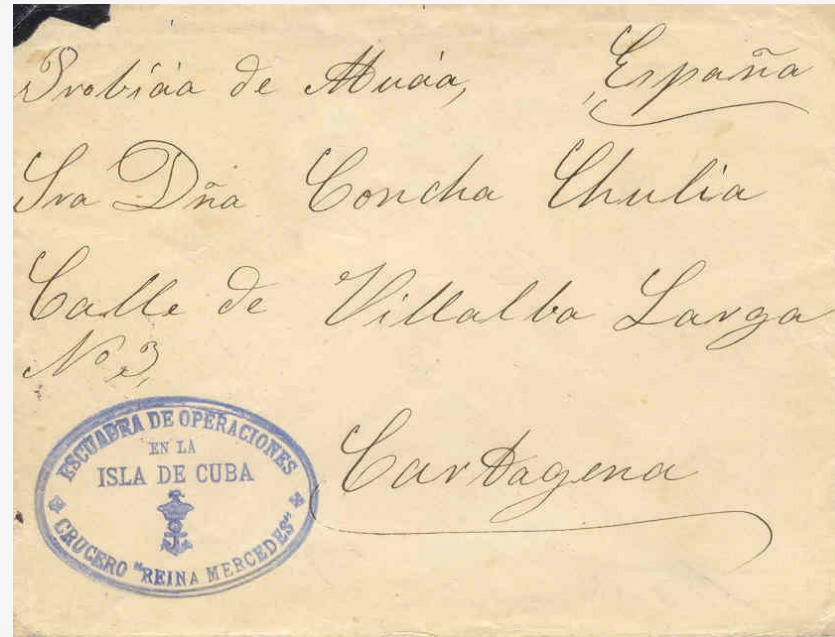 Probíáa de Muáa, España
Sra Dña Concha Chulia
Calle de Villalba Larga
Nº 3,
Cartagena
ESCUADRA DE OPERACIONES
EN LA
ISLA DE CUBA
CRUCERO "REINA MERCEDES"